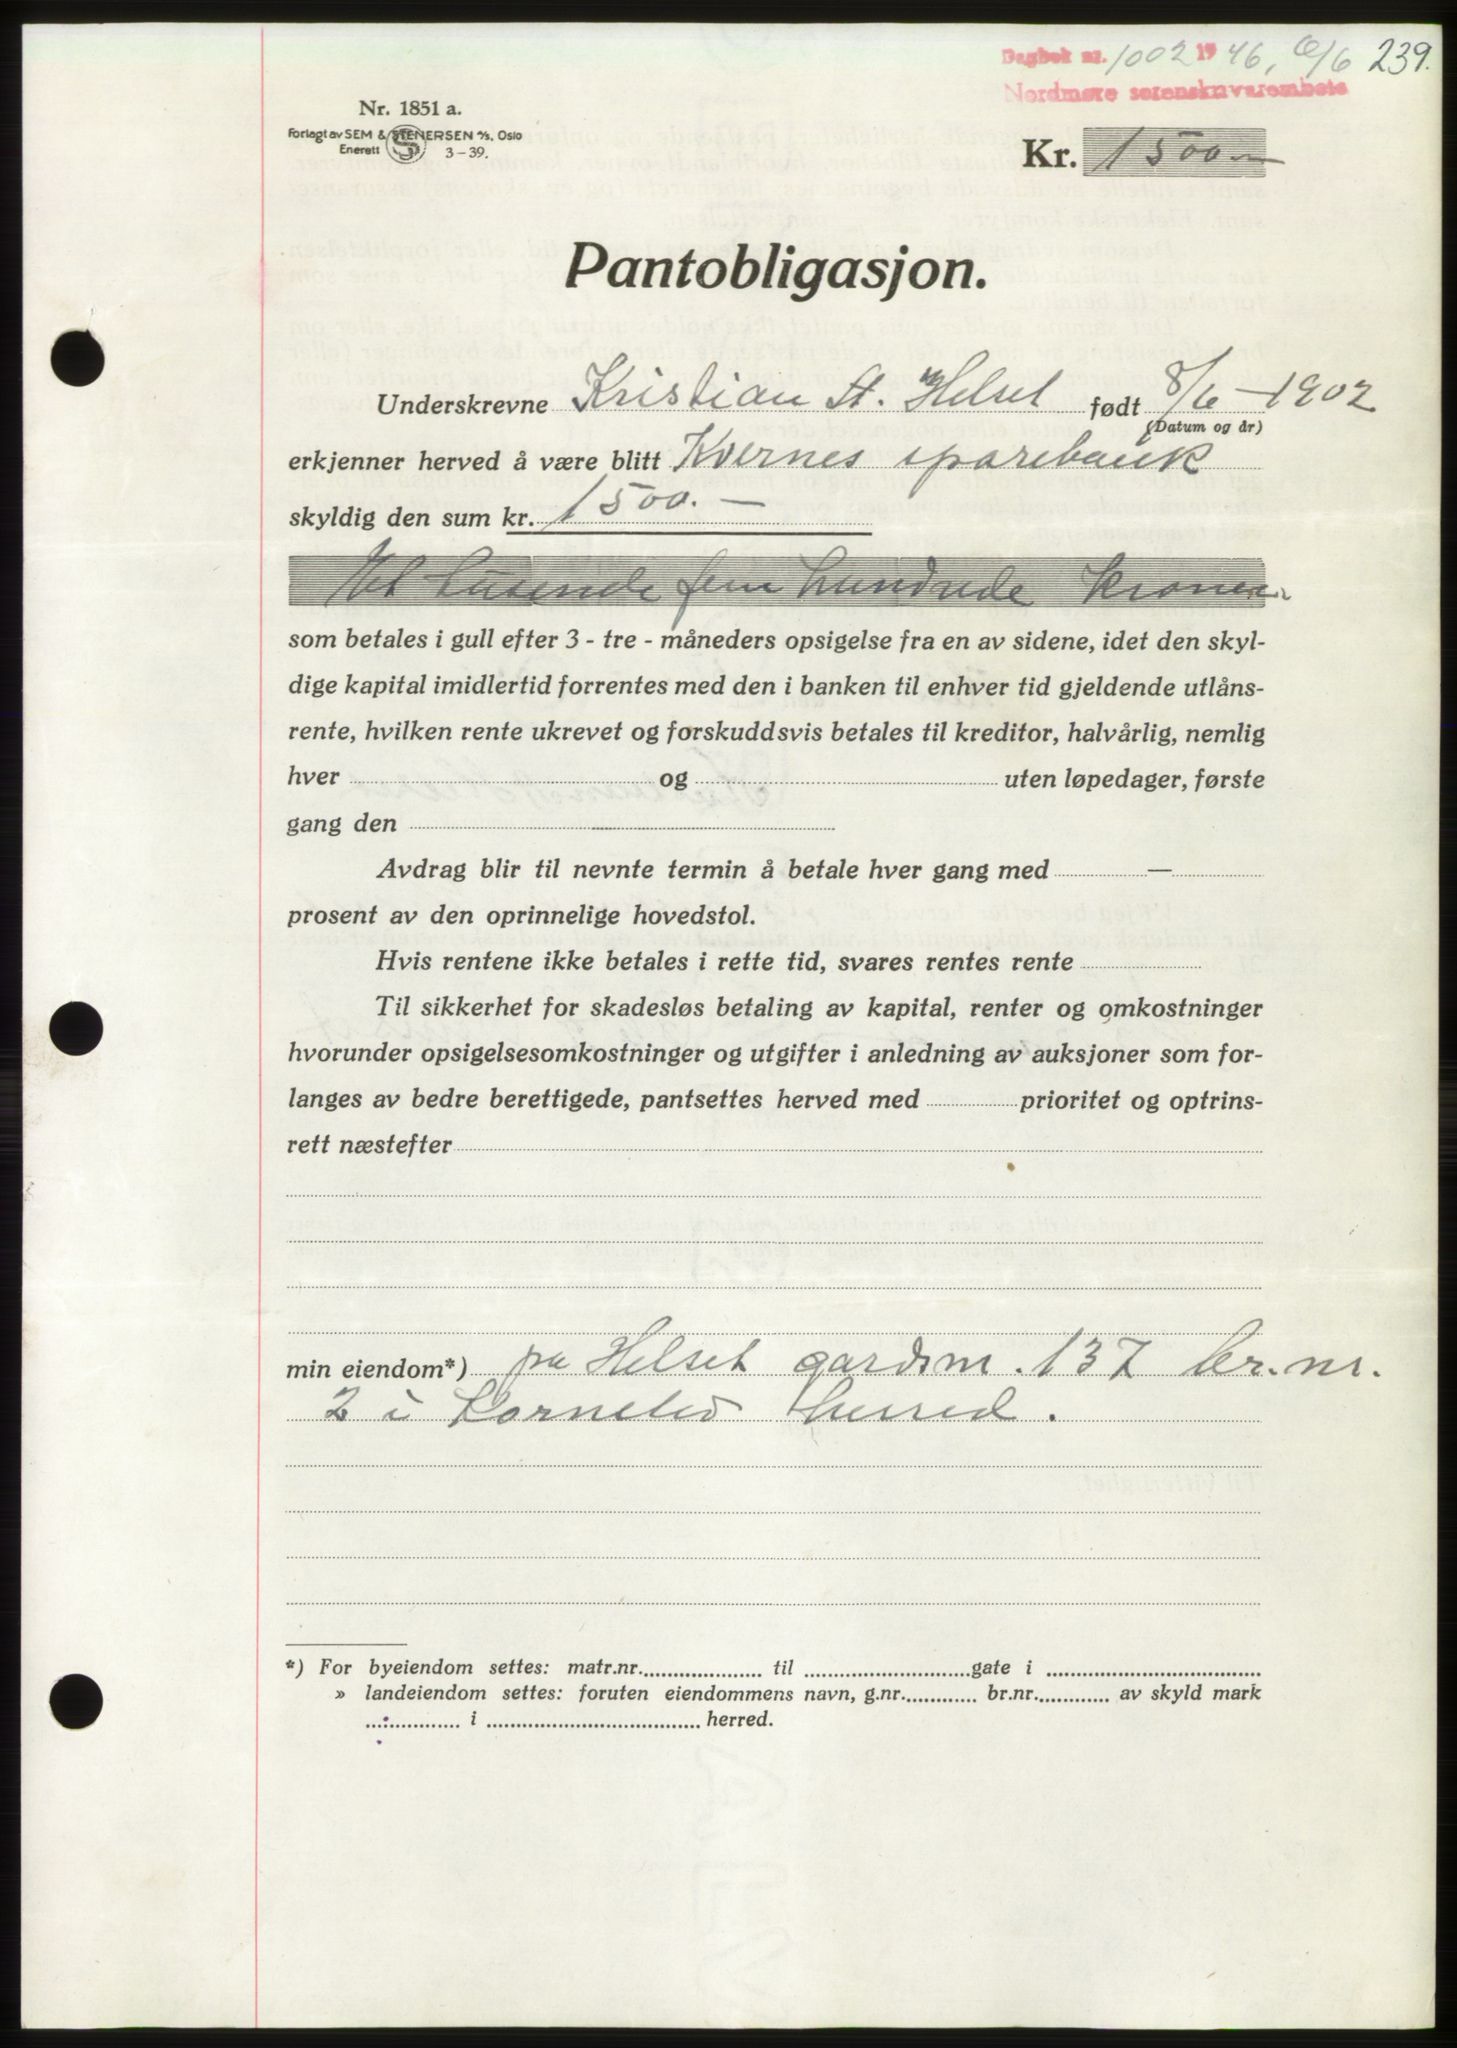 Dagbok nr. 1002 1946, 6/6 239.
Nordmøre sorenskriverembete
Nr. 1851 a.
Forlagt av SEM & STENERSEN A/S, Oslo
Enerett S 3-39.
Kr. 1500.—
Pantobligasjon.
Underskrevne Kristian St. Helset født 8/6-1902
(Datum og år)
erkjenner herved å være blitt Kvernes sparebank
skyldig den sum kr. 1500.—
Et tusende fem hundrede kroner
som betales i gull efter 3 - tre - måneders opsigelse fra en av sidene, idet den skyl-
dige kapital imidlertid forrentes med den i banken til enhver tid gjeldende utlåns-
rente, hvilken rente ukrevet og forskuddsvis betales til kreditor, halvårlig, nemlig
hver og uten løpedager, første
gang den
Avdrag blir til nevnte termin å betale hver gang med —
prosent av den oprinnelige hovedstol.
Hvis rentene ikke betales i rette tid, svares rentes rente
Til sikkerhet for skadesløs betaling av kapital, renter og omkostninger
hvorunder opsigelsesomkostninger og utgifter i anledning av auksjoner som for-
langes av bedre berettigede, pantsettes herved med prioritet og optrins-
rett næstefter
min eiendom*) på Helset gardsnr. 137 br.nr.
2 i Kornstad herred.
*) For byeiendom settes: matr.nr. til gate i
» landeiendom settes: foruten eiendommens navn, g.nr. br.nr. av skyld mark
i herred.